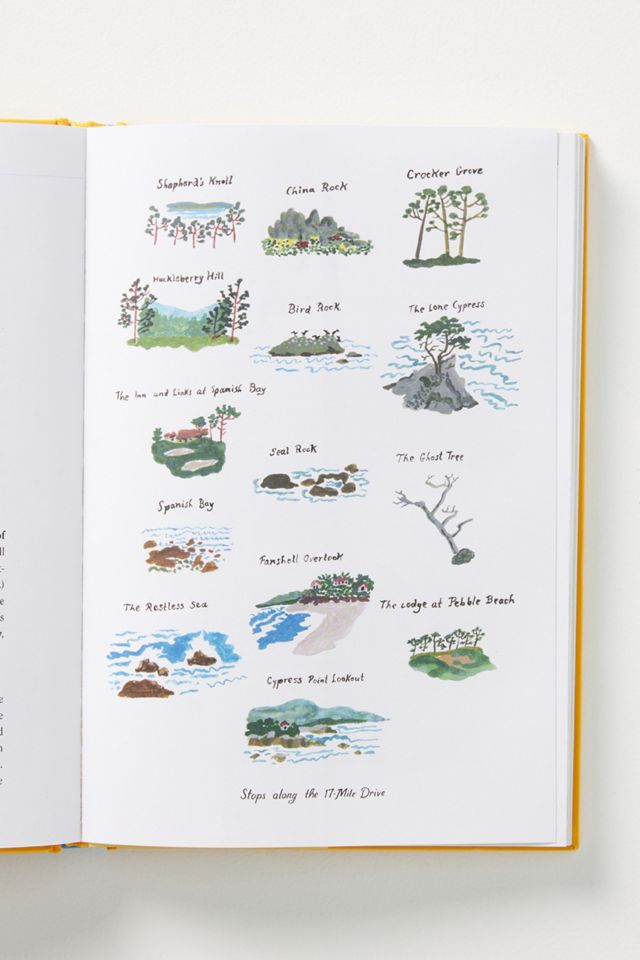 Shepherd's Knoll
China Rock
Crocker Grove
Huckleberry Hill
Bird Rock
The Lone Cypress
The Inn and Links at Spanish Bay
Seal Rock
The Ghost Tree
Spanish Bay
Fanshell Overlook
The Restless Sea
The Lodge at Pebble Beach
Cypress Point Lookout
Stops along the 17-Mile Drive